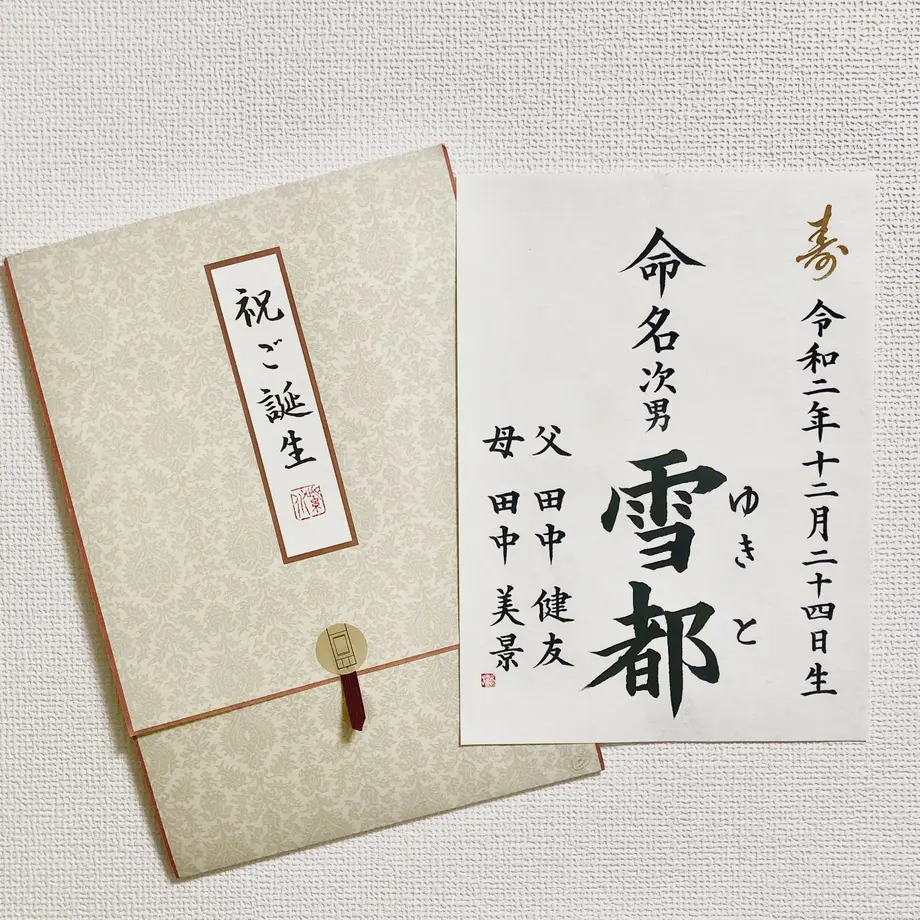 祝ご誕生
寿
令和二年十二月二十四日生
命名次男
雪都
ゆきと
父 田中 健友
母 田中 美景